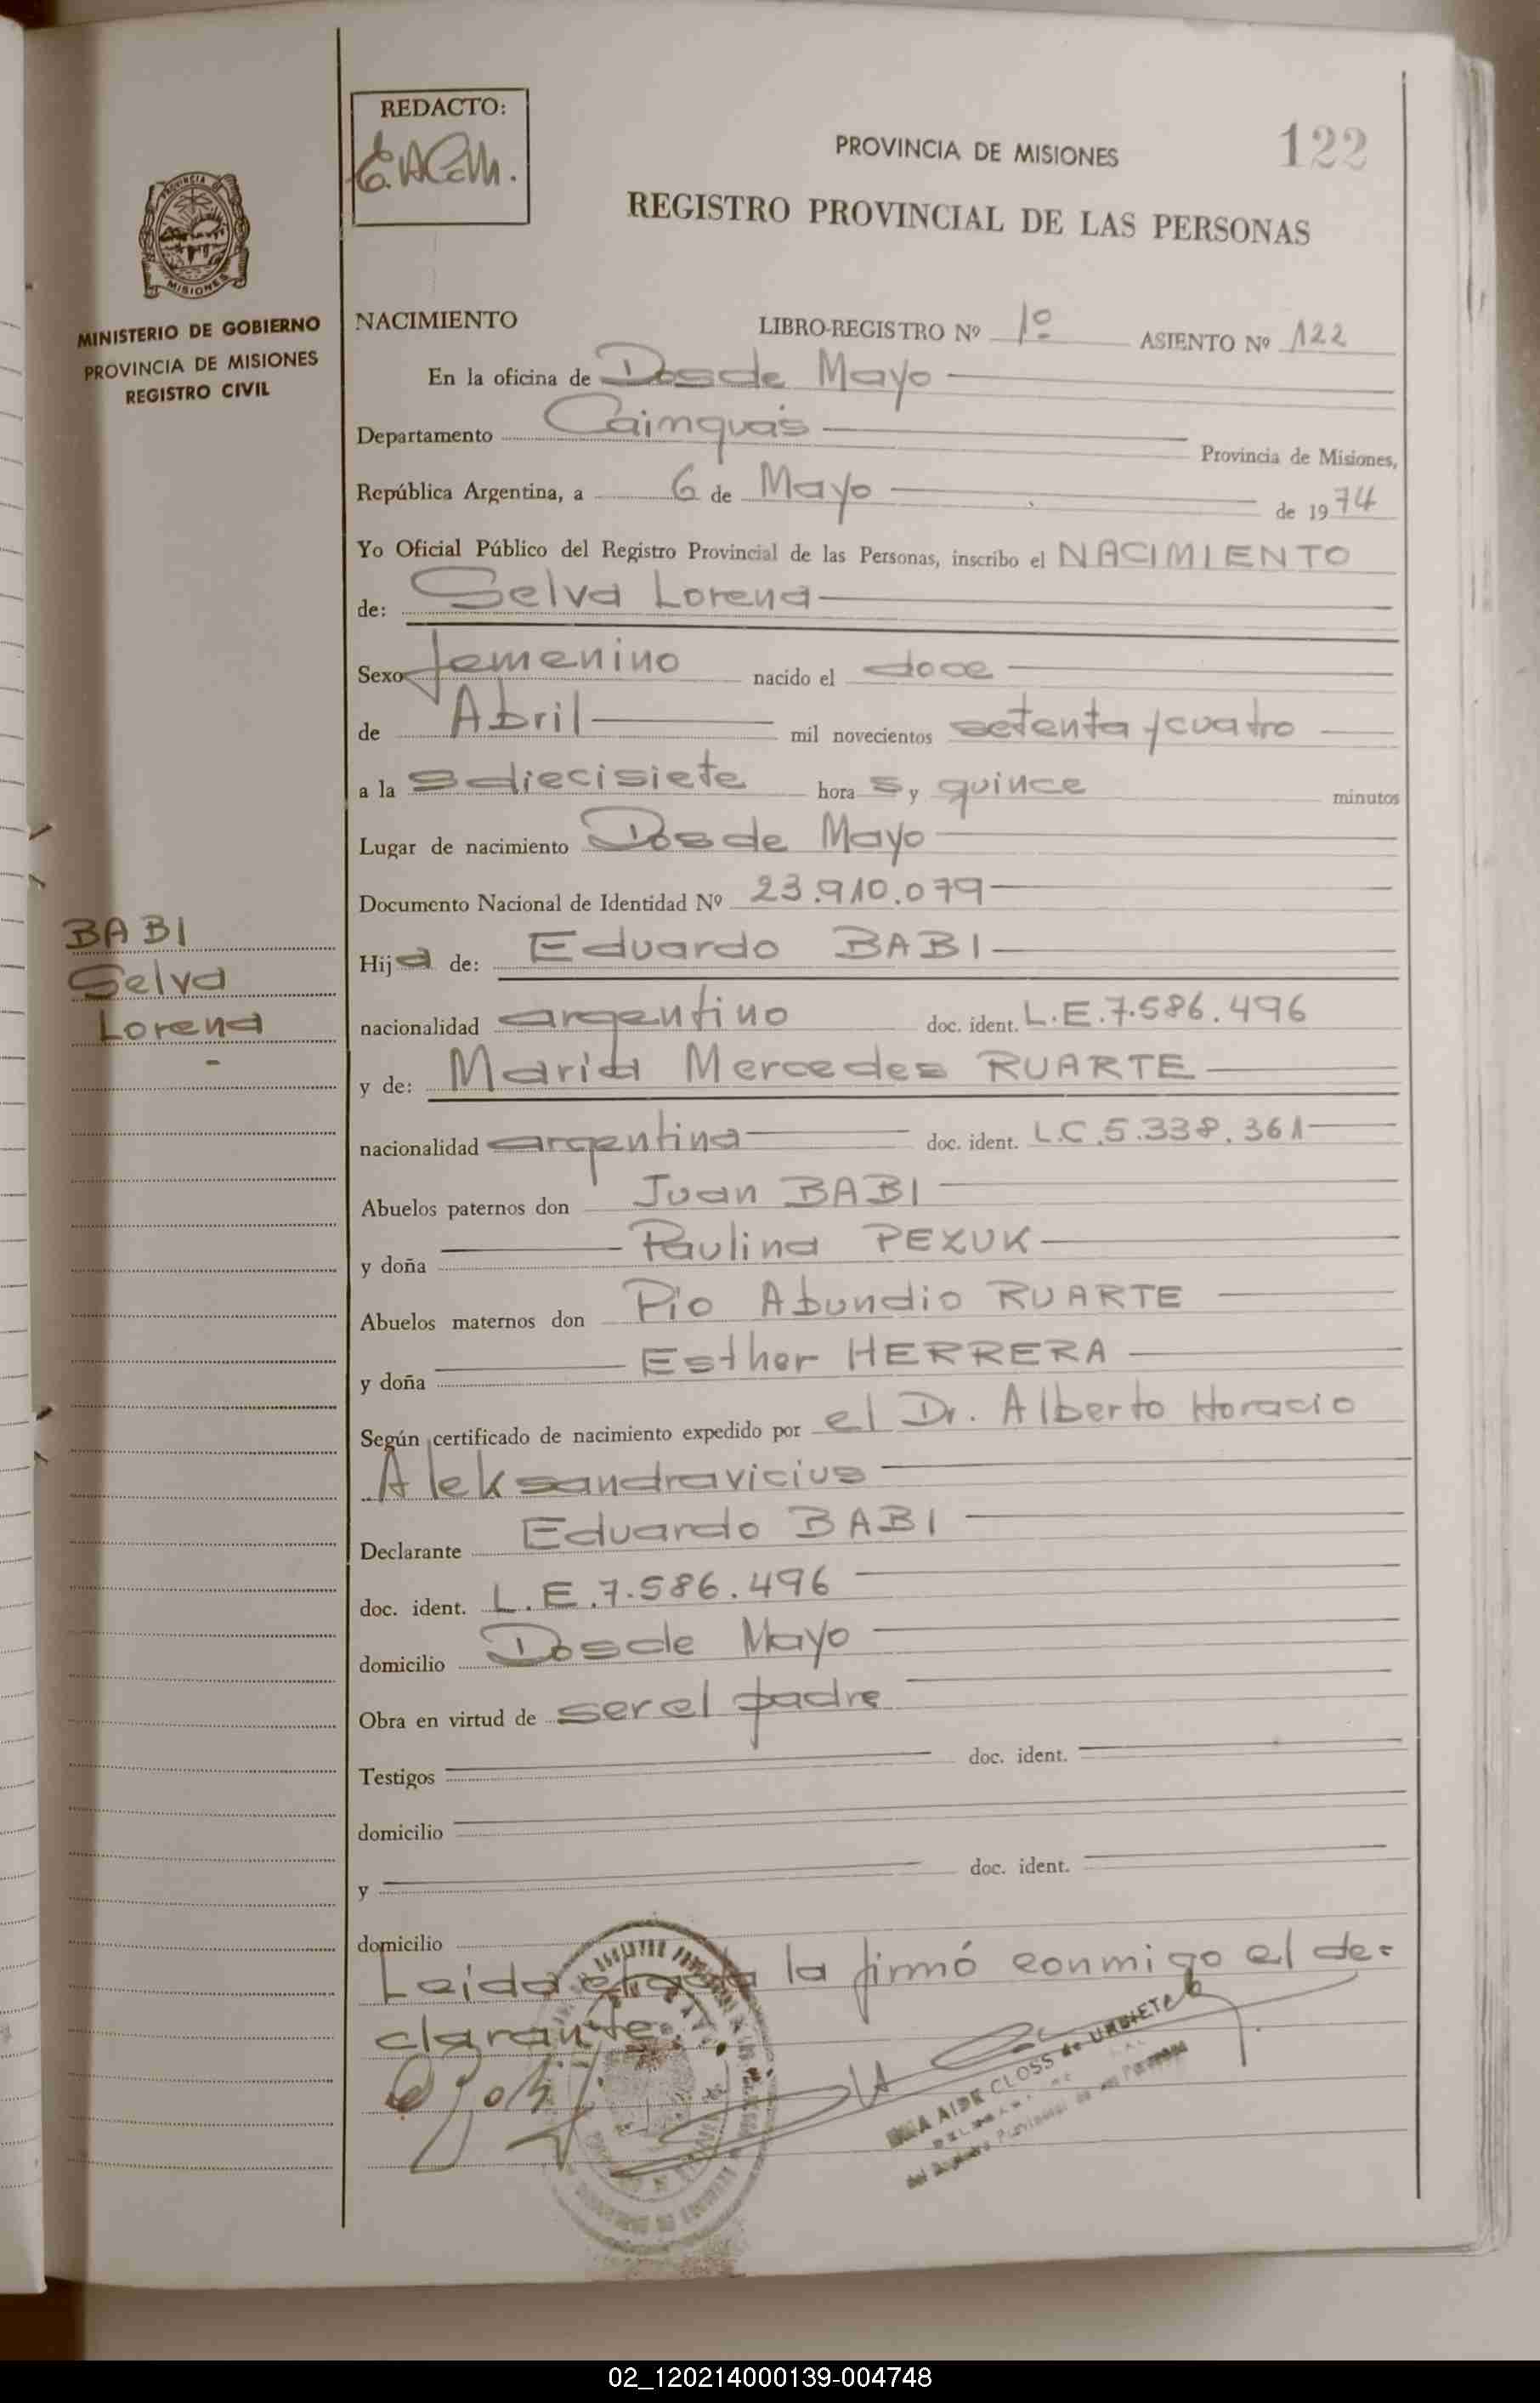 REDACTO:
PROVINCIA DE MISIONES
122
REGISTRO PROVINCIAL DE LAS PERSONAS
PROVINCIA DE
MISIONES
MINISTERIO DE GOBIERNO
PROVINCIA DE MISIONES
REGISTRO CIVIL
NACIMIENTO LIBRO-REGISTRO Nº 1º ASIENTO Nº 122
En la oficina de Dos de Mayo
Departamento Cainguás Provincia de Misiones,
República Argentina, a 6 de Mayo de 1974
Yo Oficial Público del Registro Provincial de las Personas, inscribo el NACIMIENTO
de: Selva Lorena
Sexo femenino nacido el doce
de Abril mil novecientos setenta y cuatro
a la s diecisiete hora s y quince minutos
Lugar de nacimiento Dos de Mayo
Documento Nacional de Identidad Nº 23.910.079
BABI
Selva
Lorena
-
Hija de: Eduardo BABI
nacionalidad argentino doc. ident. L.E.7.586.496
y de: Maria Mercedes RUARTE
nacionalidad argentina doc. ident. L.C.5.338.361
Abuelos paternos don Juan BABI
y doña Paulina PEXUK
Abuelos maternos don Pio Abundio RUARTE
y doña Esther HERRERA
Según certificado de nacimiento expedido por el Dr. Alberto Horacio
Aleksandravicius
Declarante Eduardo BABI
doc. ident. L.E.7.586.496
domicilio Dos de Mayo
Obra en virtud de ser el padre
Testigos doc. ident.
domicilio
y doc. ident.
domicilio
Leida el acta la firmó conmigo el de=
clarante.
AIDE CLOSS de URBIETA
02_120214000139-004748